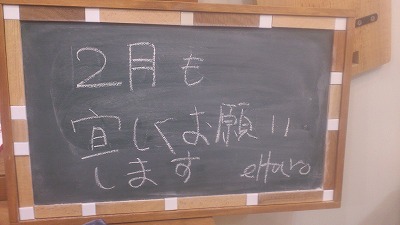 ２月も
宜しくお願い
します
eHaro